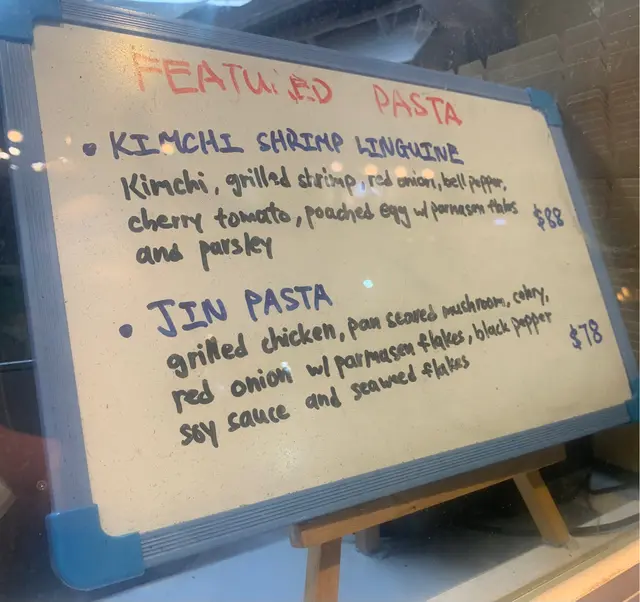 FEATURED PASTA
• KIMCHI SHRIMP LINGUINE
Kimchi, grilled shrimp, red onion, bell pepper,
cherry tomato, poached egg w/ parmasen flakes $88
and parsley
• JIN PASTA
grilled chicken, pan seared mushroom, celery,
red onion w/ parmasen flakes, black pepper $78
soy sauce and seaweed flakes